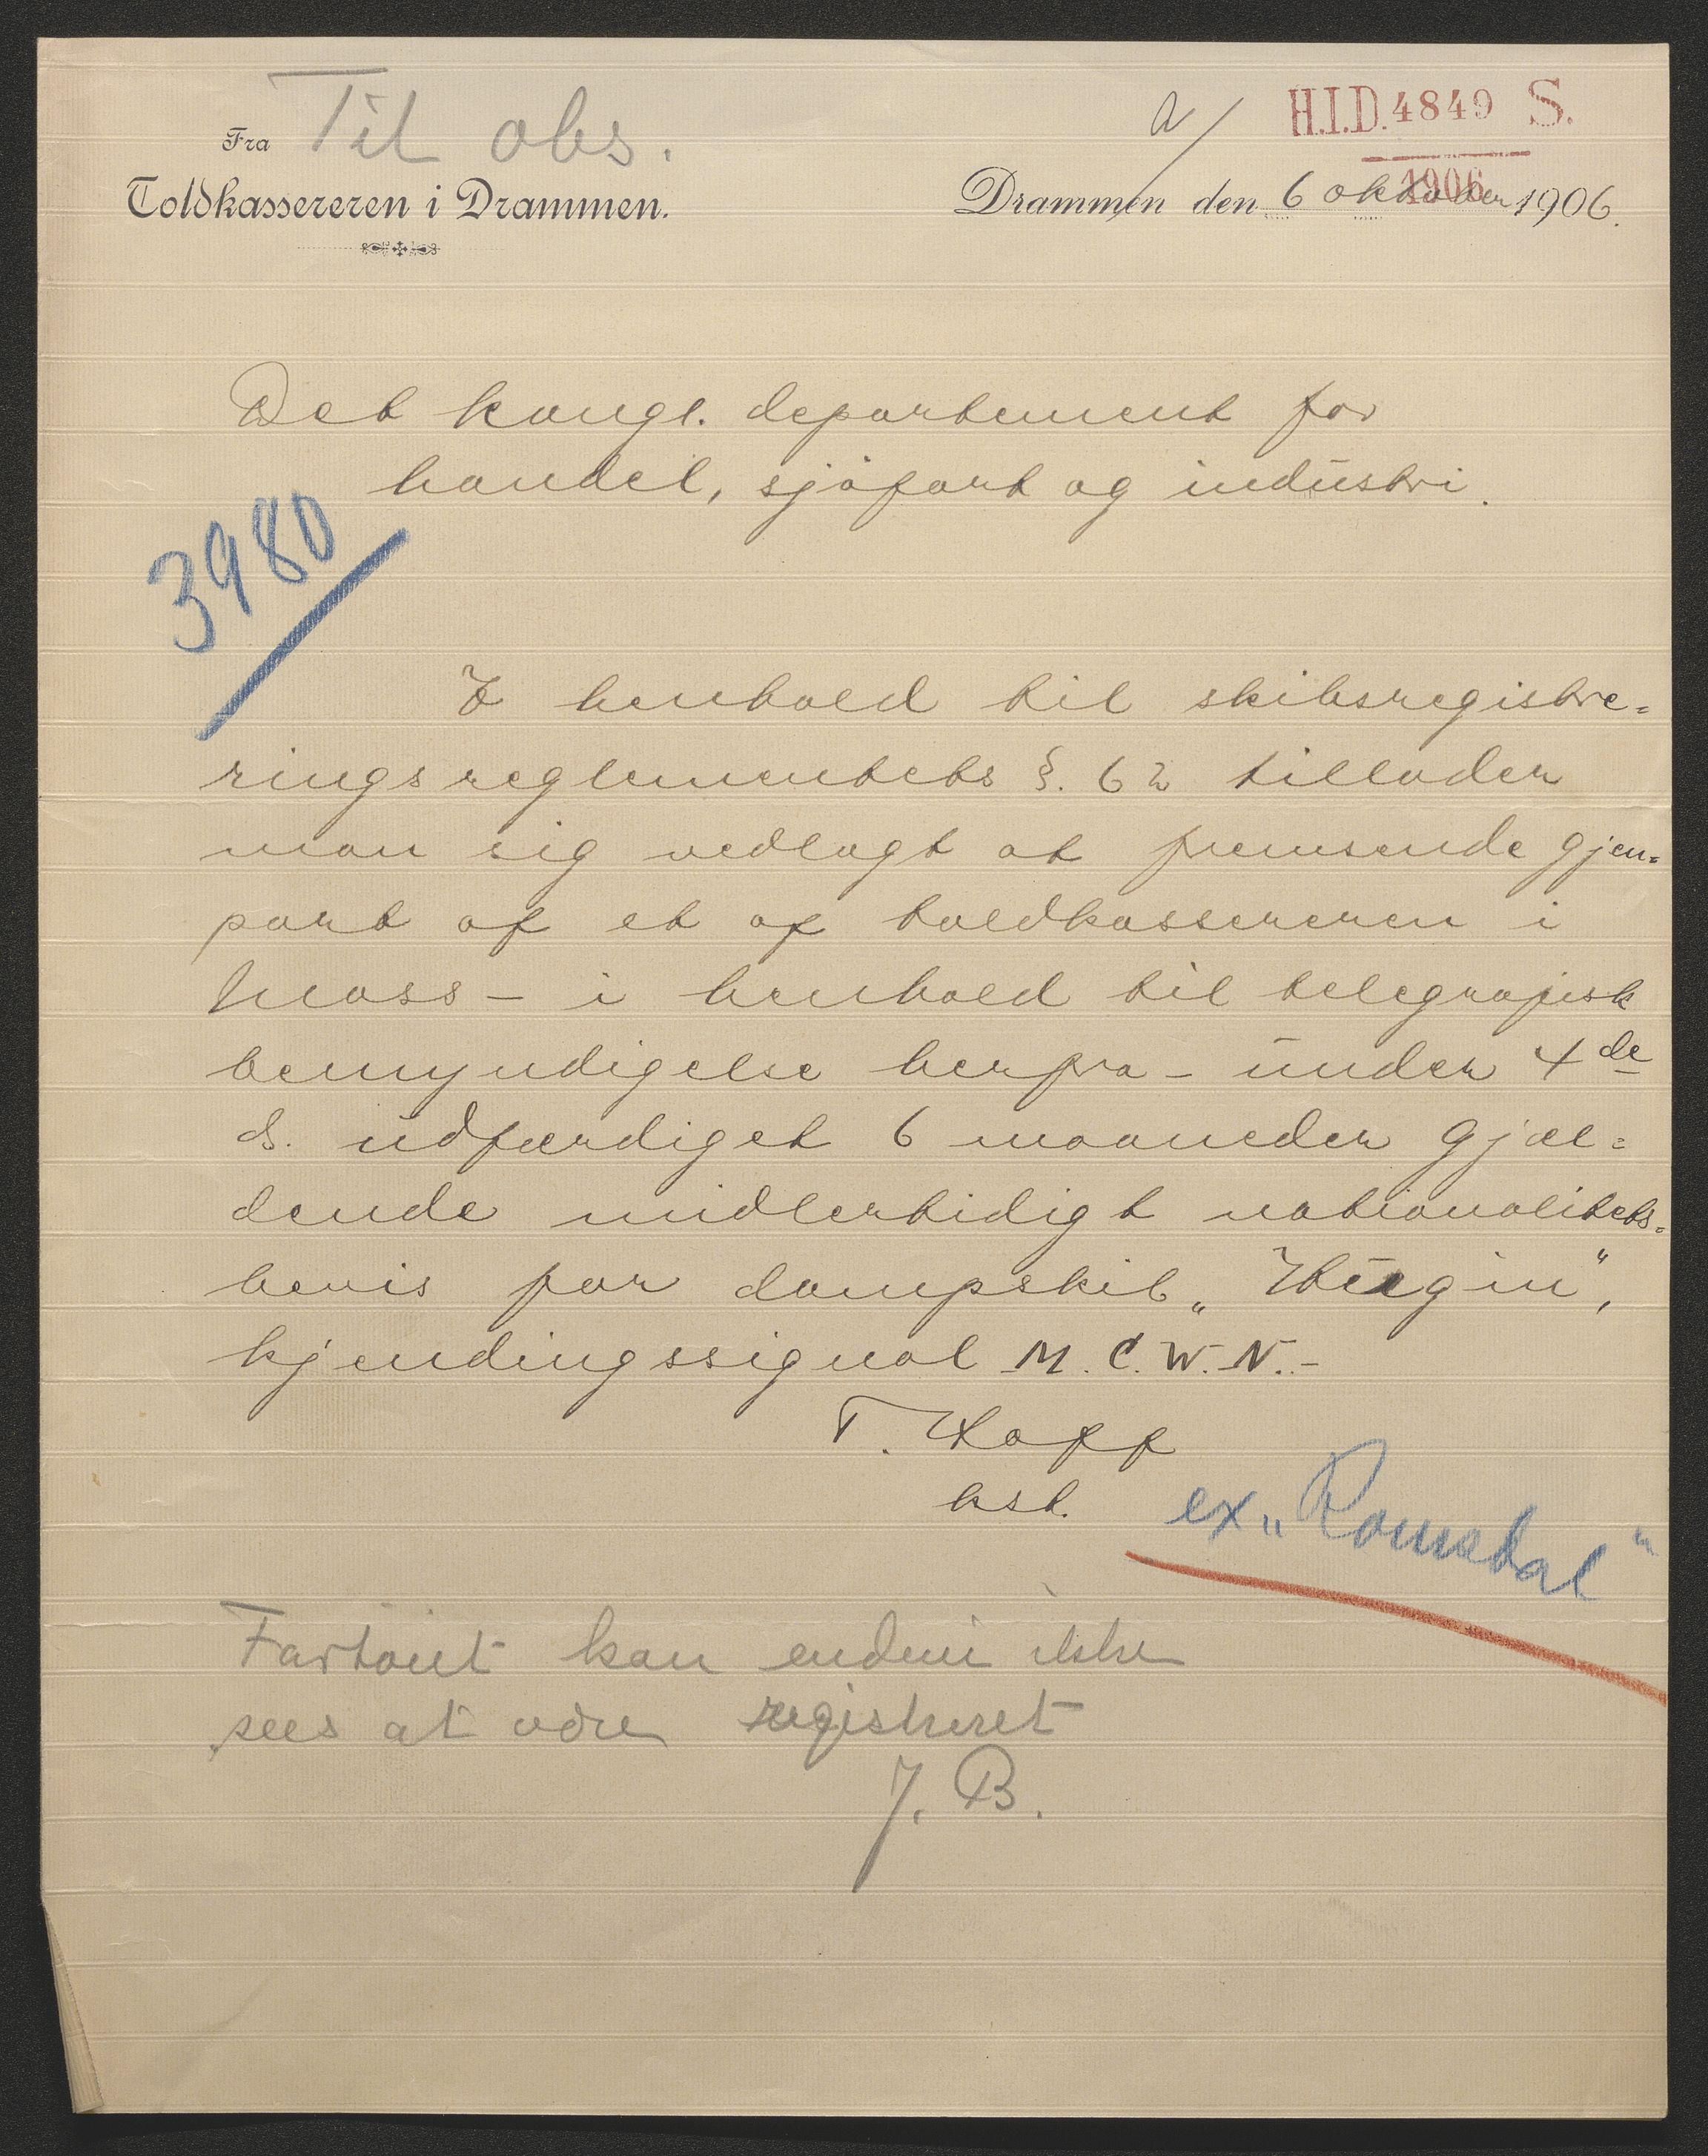 Til obs.
a/
H.I.D. 4849 S.
1906
Fra
Toldkassereren i Drammen.
Drammen den 6 oktober 1906.
Det kongl. departement for
handel, sjöfart og industri.
3980
I henhold til skibsregistre=
ringsreglementets §. 62 tillader
man sig vedlagt at fremsende gjen=
part af et af toldkassereren i
Moss – i henhold til telegrafisk
bemyndigelse herfra – under 4de
ds. udfærdiget 6 maaneder gjæl=
dende midlertidigt nationalitets=
bevis for dampskib „Hugin“,
kjendingssignal M.C.W.N.–
T. Kopp
kst.
ex „Romsdal“
Fartöiet kan endnu ikke
sees at være registreret
J. B.